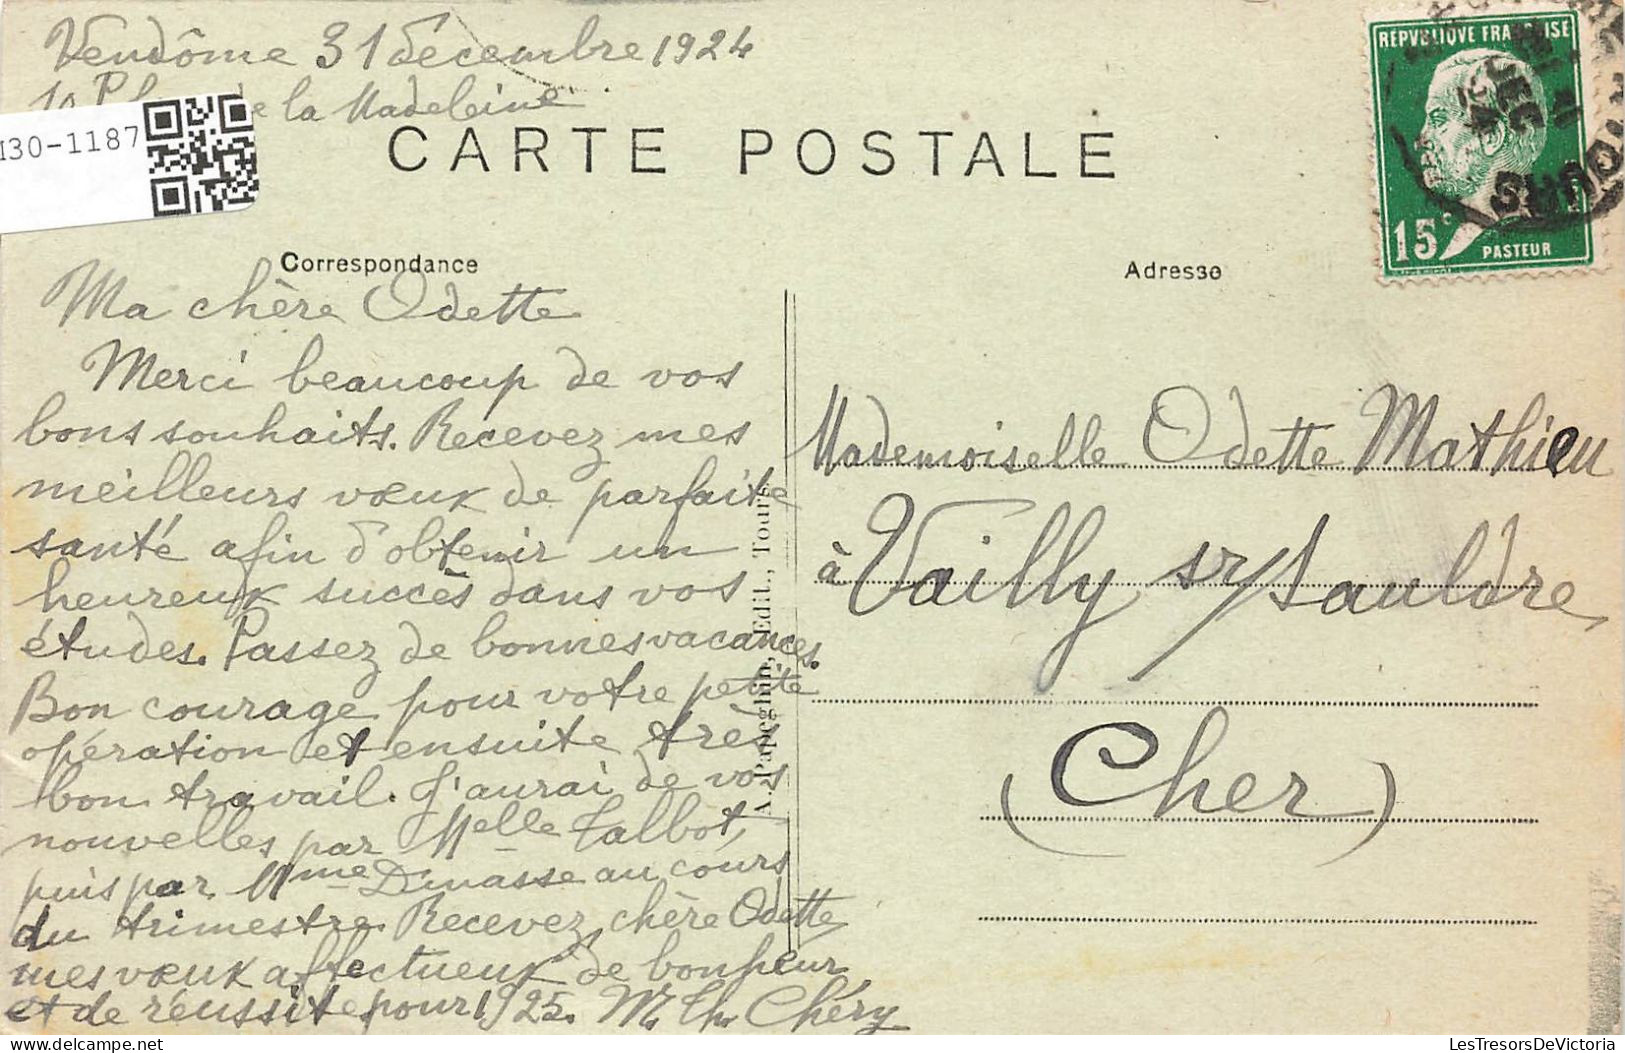 Vendôme 31 décembre 1924
de la Madeleine
130-1187
CARTE POSTALE
REPVBLIQVE FRANÇAISE
15c
PASTEUR
Correspondance
Adresse
Ma chère Odette
Merci beaucoup de vos
bons souhaits. Recevez mes
meilleurs vœux de parfaite
santé afin d'obtenir un
heureux succès dans vos
études. Passez de bonnes vacances.
Bon courage pour votre petite
opération et ensuite très
bon travail. J'aurai de vos
nouvelles par Melle Talbot,
puis par Mme Dinasse au cours
du trimestre. Recevez, chère Odette,
mes vœux affectueux de bonheur
et de réussite pour 1925. M. Th. Chéry
A. Papeghin, Edit., Tours
Mademoiselle Odette Mathieu
à Vailly sr/Sauldre
(Cher)
www.delcampe.net
LesTresorsDeVictoria